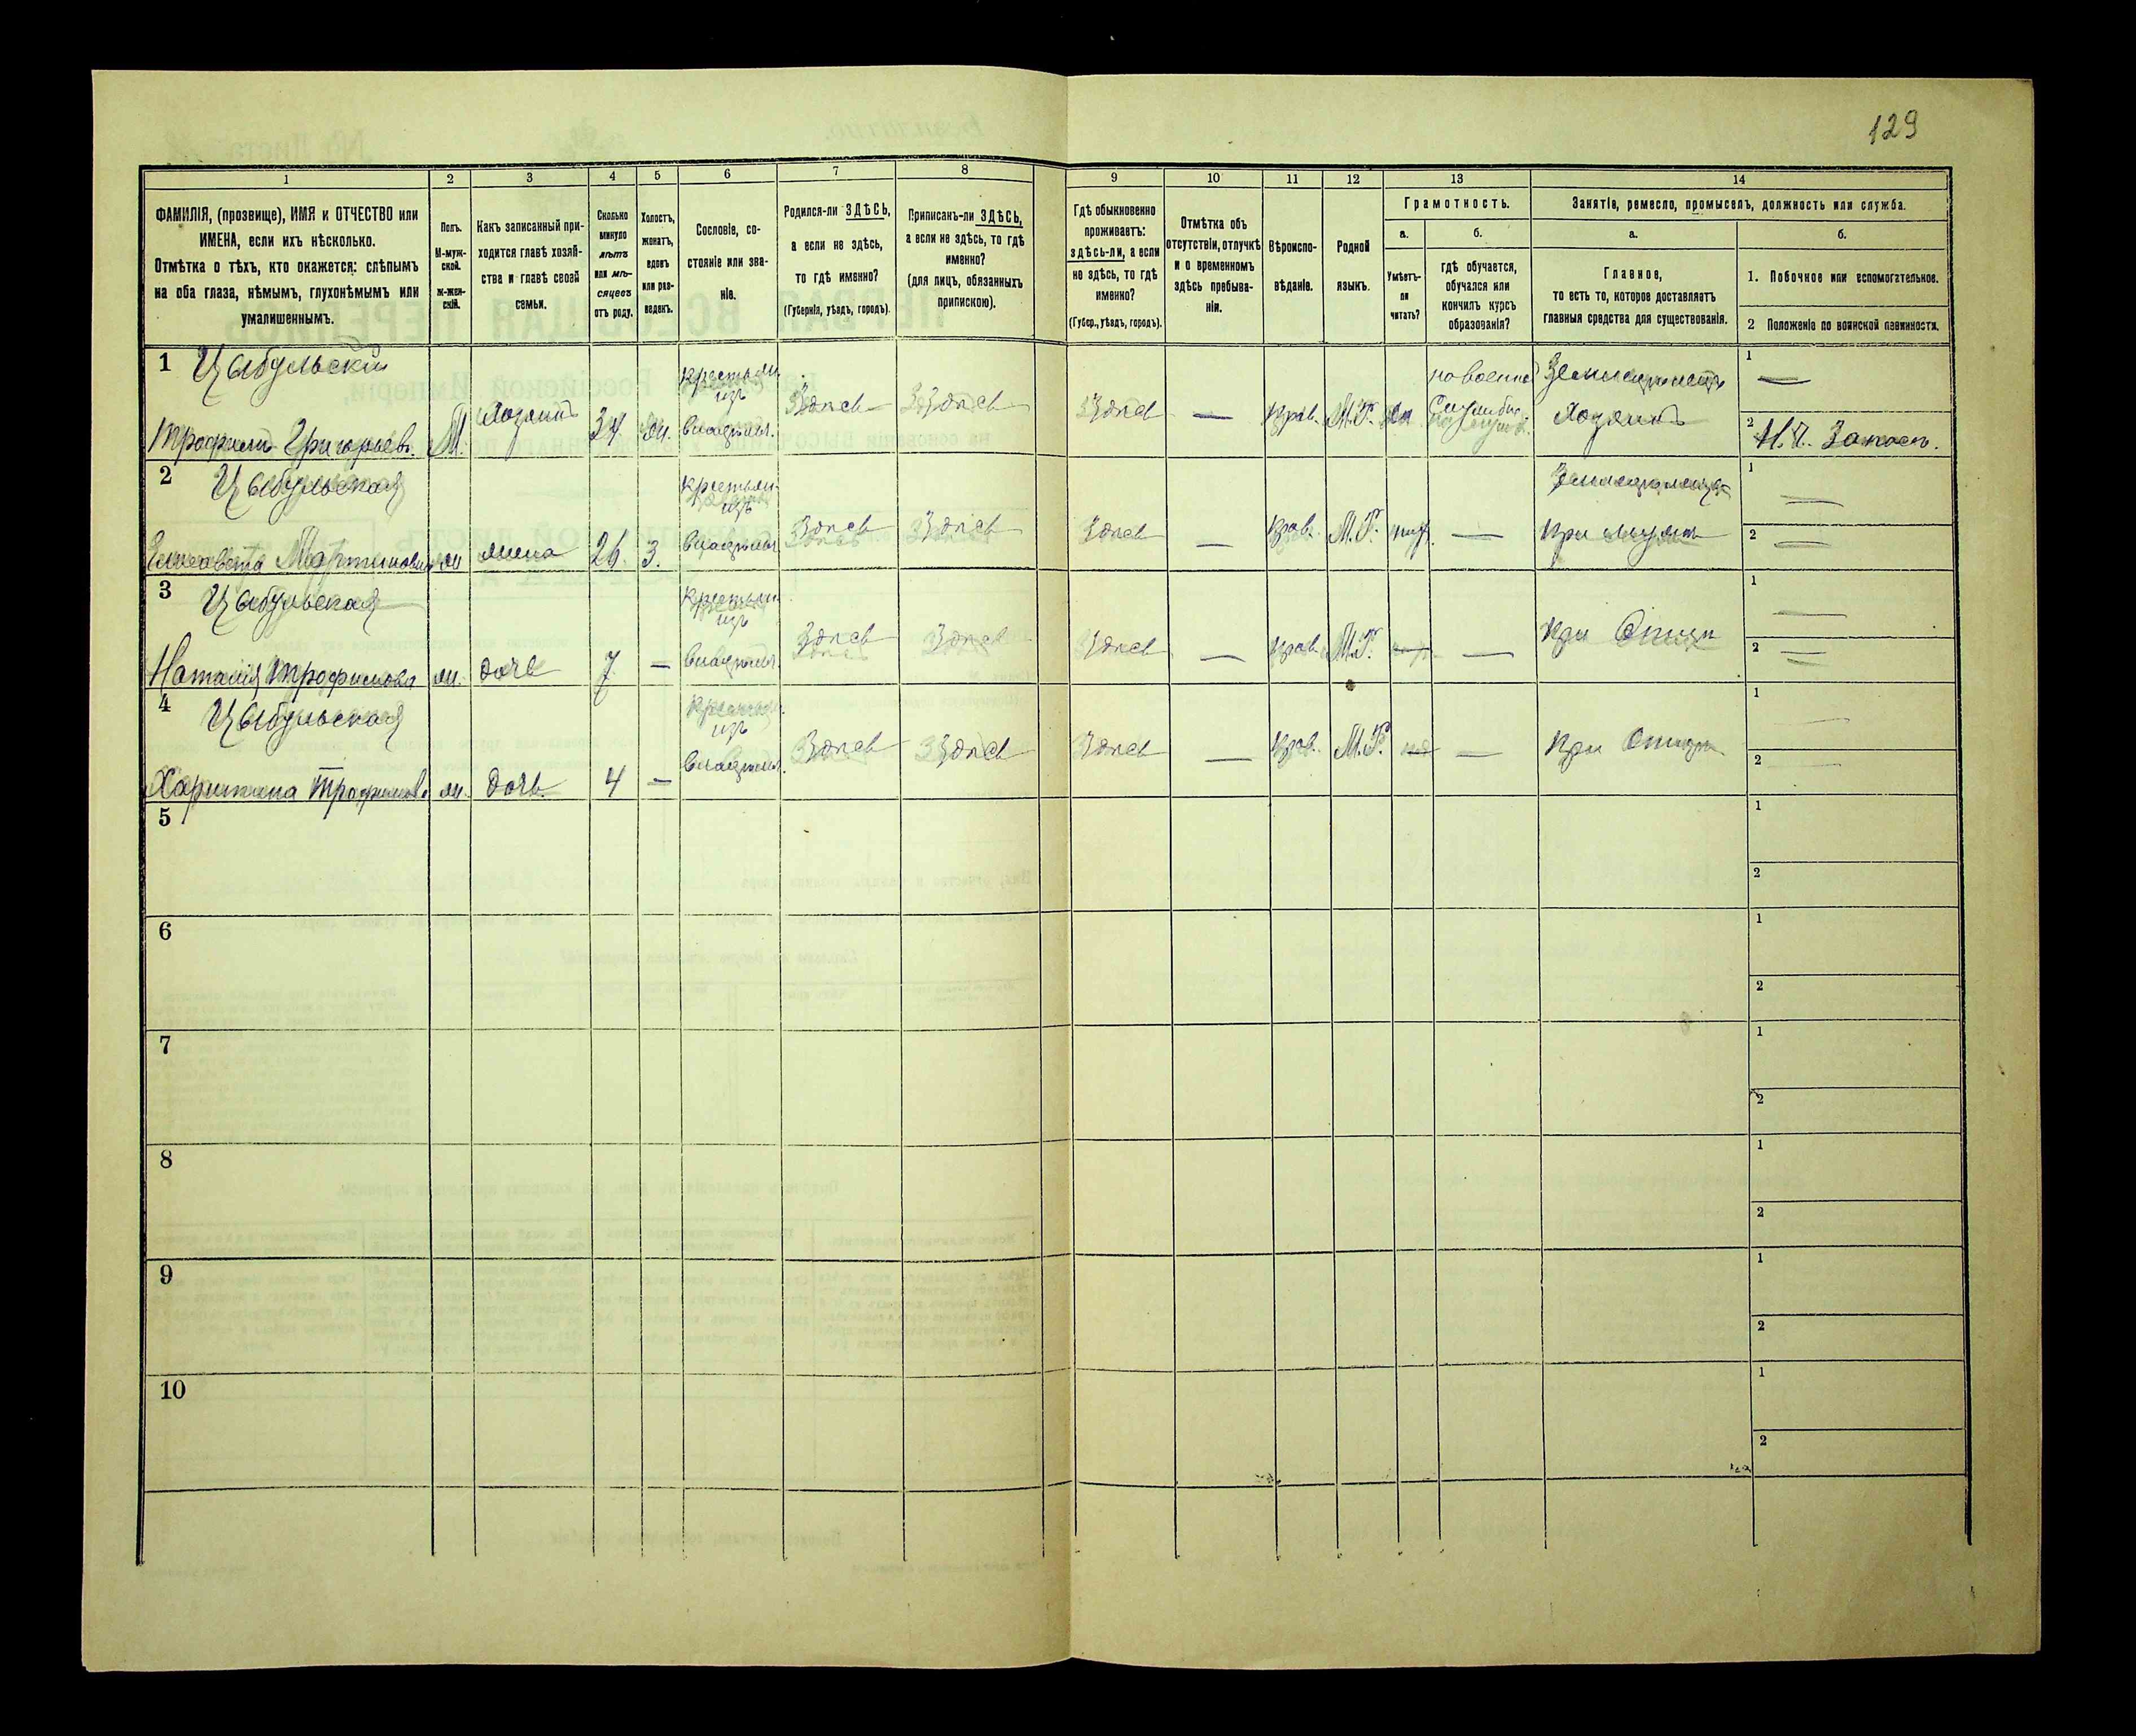 129
1 2 3 4 5 6 7 8 9 10 11 12 13 14
ФАМИЛІЯ, (прозвище), ИМЯ и ОТЧЕСТВО или
ИМЕНА, если ихъ нѣсколько.
Отмѣтка о тѣхъ, кто окажется: слѣпымъ
на оба глаза, нѣмымъ, глухонѣмымъ или
умалишеннымъ.
Полъ.
М-муж-
ской.
Ж-жен-
скій.
Какъ записанный при-
ходится главѣ хозяй-
ства и главѣ своей
семьи.
Сколько
минуло
лѣтъ
или мѣ-
сяцевъ
отъ роду.
Холостъ,
женатъ,
вдовъ
или раз-
веденъ.
Сословіе, со-
стояніе или зва-
ніе.
Родился-ли ЗДѢСЬ,
а если не здѣсь,
то гдѣ именно?
(Губернія, уѣздъ, городъ).
Приписанъ-ли ЗДѢСЬ,
а если не здѣсь, то гдѣ
именно?
(для лицъ, обязанныхъ
припискою).
Гдѣ обыкновенно
проживаетъ:
здѣсь-ли, а если
не здѣсь, то гдѣ
именно?
(Губер., уѣздъ, городъ).
Отмѣтка объ
отсутствіи, отлучкѣ
и о временномъ
здѣсь пребыва-
ніи.
Вѣроиспо-
вѣданіе.
Родной
языкъ.
Грамотность.
а.
Умѣетъ-
ли
читать?
б.
гдѣ обучается,
обучался или
кончилъ курсъ
образованія?
Занятіе, ремесло, промыселъ, должность или служба.
а.
Главное,
то есть то, которое доставляетъ
главныя средства для существованія.
б.
1. Побочное или вспомогательное.
2 Положеніе по воинской повинности.
1 Цыбульскій крестьян. Земледѣлецъ 1 —
изъ
Трофимъ Григорьев. М. хозяинъ 34 ж. владѣльч. Здѣсь Здѣсь Здѣсь — прав. М.Р. да хозяинъ 2 Н. Ч. Запаса.
2 Цыбульская крестьян. 1 —
изъ
Елисавета Мартинова ж жена 26. з. владѣльч. Здѣсь Здѣсь Здѣсь — прав. М.Р. — при мужѣ 2 —
3 Цыбульская крестьян. 1 —
изъ
Наталія Трофимова ж. дочь 7 — владѣльч. Здѣсь Здѣсь Здѣсь — прав. М.Р. — при Отцѣ 2 —
4 Цыбульская крестьян. 1
изъ
Харитина Трофимова ж. дочь 4 — владѣльч. Здѣсь Здѣсь Здѣсь — прав. М.Р. — при Отцѣ 2
5 1
2
6 1
2
7 1
2
8 1
2
9 1
2
10 1
2